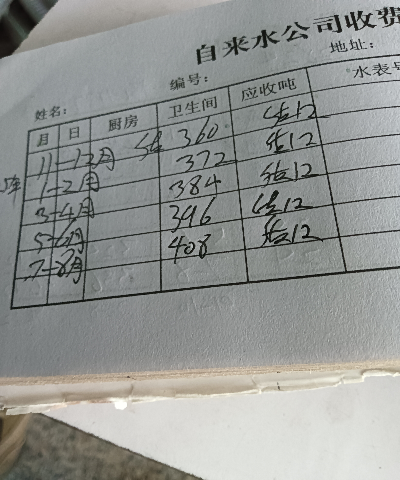 自来水公司收费
姓名： 编号： 地址：
月 日 厨房 卫生间 应收吨 水表号
11-12月 估 360 估12
1-2月 372 估12
3-4月 384 估12
5-6月 396 估12
7-8月 408 估12